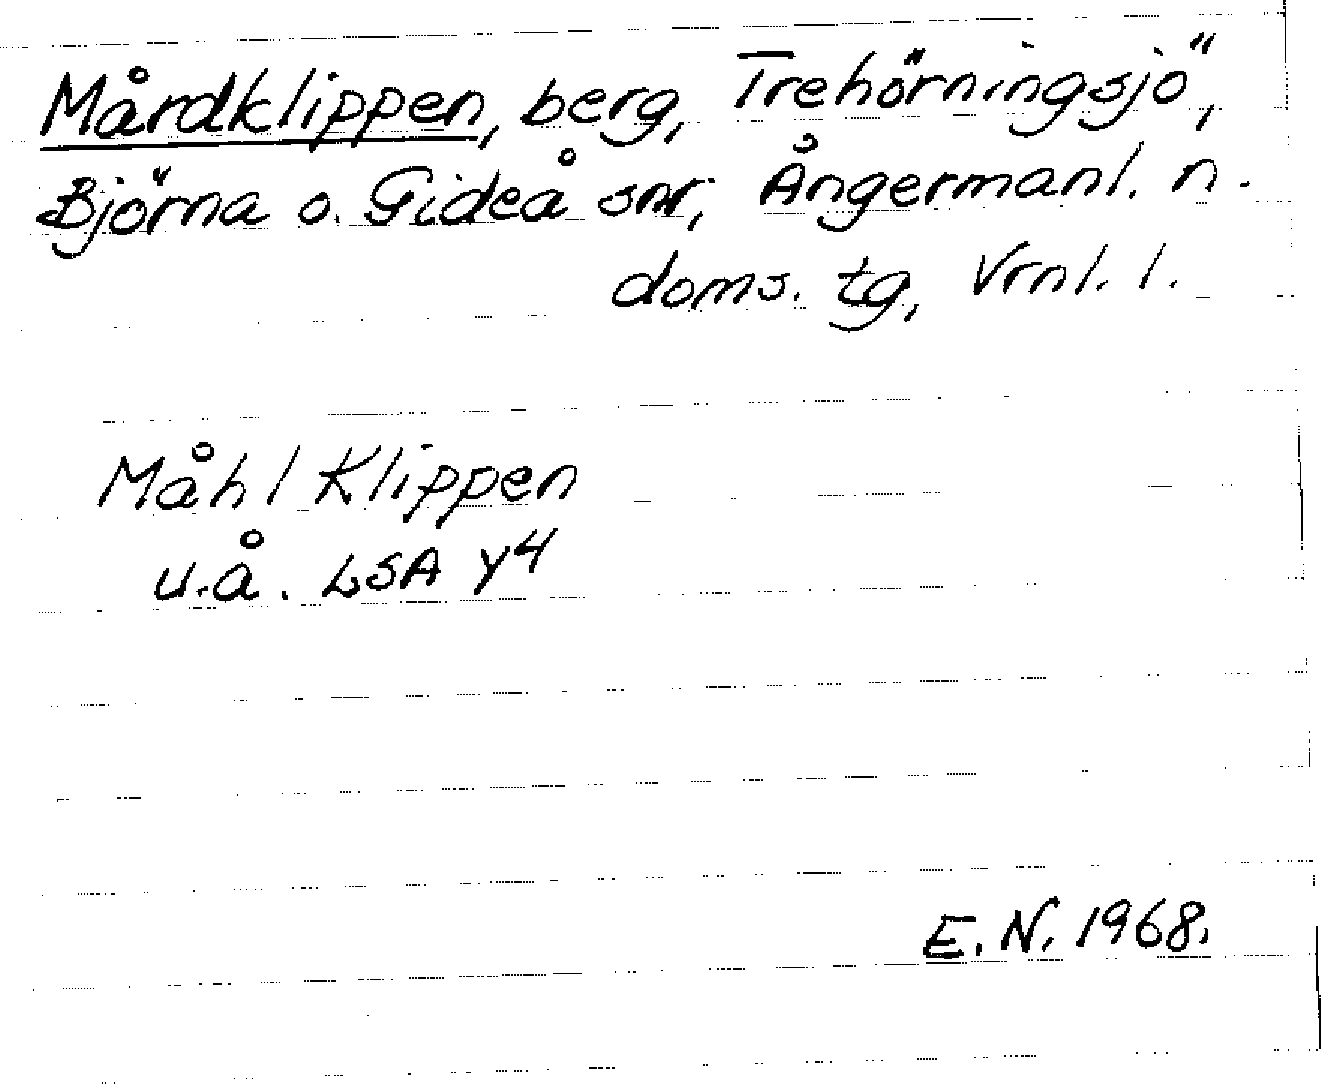 Mårdklippen, berg, Trehörningsjö,
Björna o. Gideå snr, Ångermanl. n.
doms. tg, Vrnl. l.
Måhl Klippen
u.å. LSA Y4
E. N. 1968.